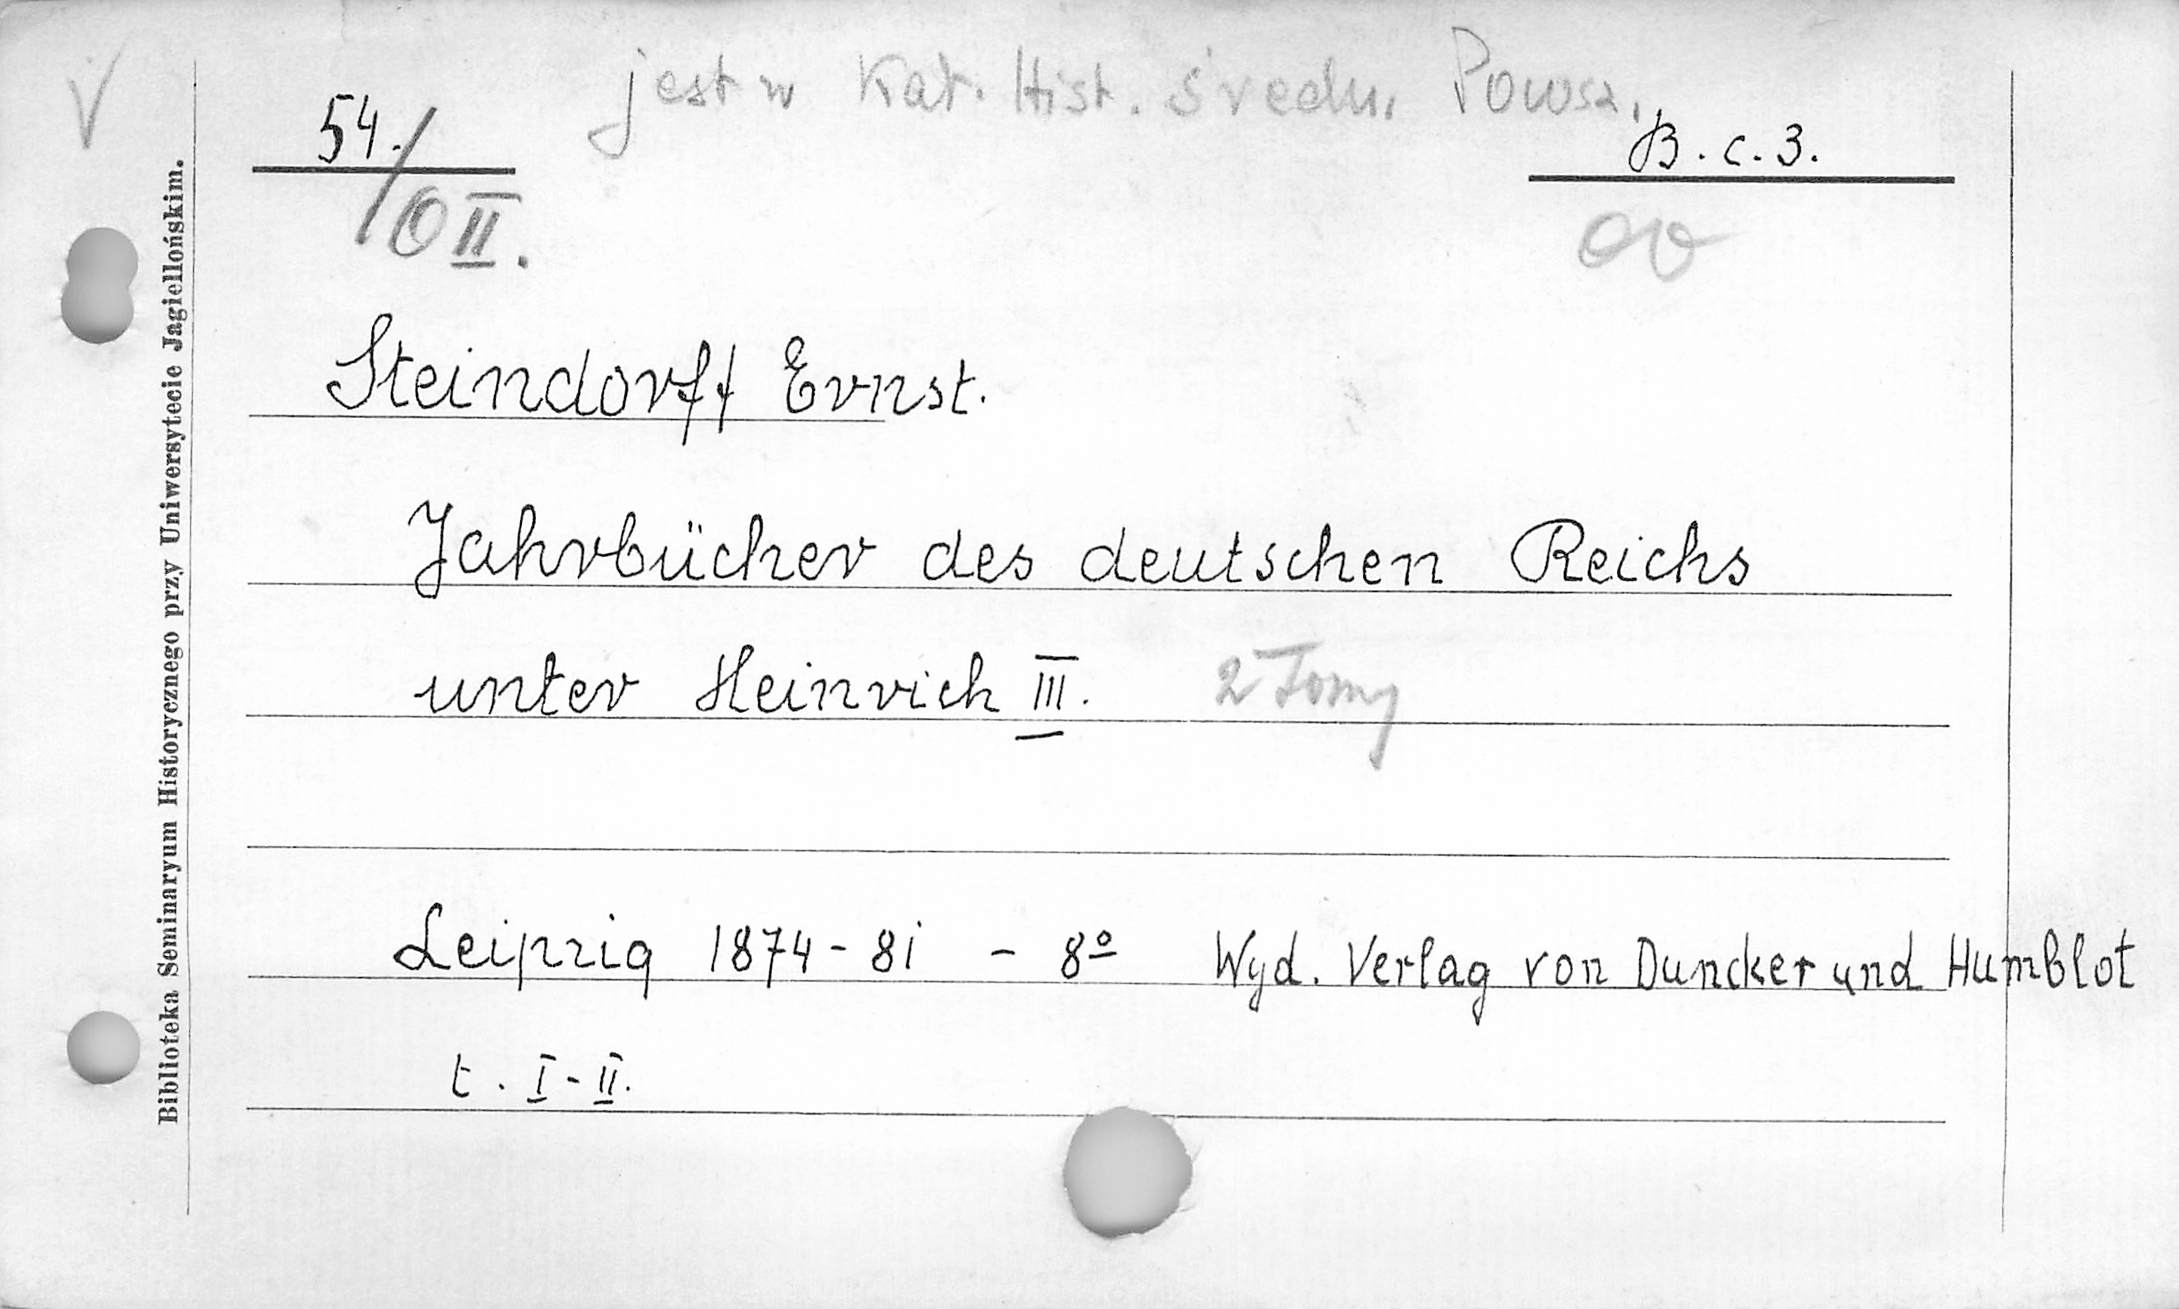 jest w Kat. Hist. średn. Powsz.
54./OII.
B.c.3.
Steindorff Ernst.
Jahrbücher des deutschen Reichs
unter Heinrich III. 2 Tomy
Leipzig 1874-81 - 8º Wyd. Verlag von Duncker und Humblot
t. I-II.
Biblioteka Seminaryum Historycznego przy Uniwersytecie Jagiellońskim.